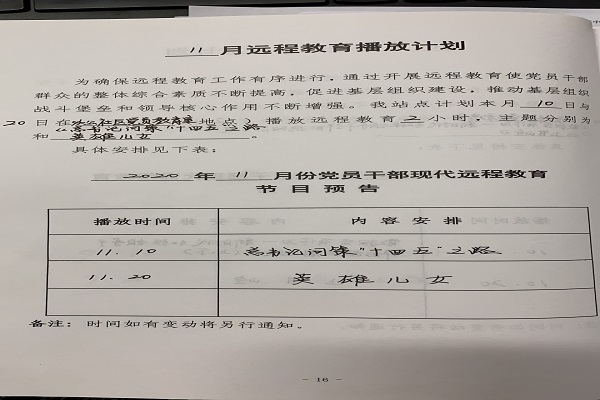 11 月远程教育播放计划
为确保远程教育工作有序进行，通过开展远程教育使党员干部
群众的整体综合素质不断提高，促进基层组织建设，推动基层组织
战斗堡垒和领导核心作用不断增强。我站点计划本月 10 日与
20 日在 社区党员教育 地点）播放远程教育 2 小时，主题分别为
《总书记问策“十四五”之路
和 英雄儿女 。
具体安排见下表：
2020 年 11 月份党员干部现代远程教育
节目预告
播放时间 内容安排
11.10 总书记问策“十四五”之路
11.20 英雄儿女
备注：时间如有变动将另行通知。
- 16 -